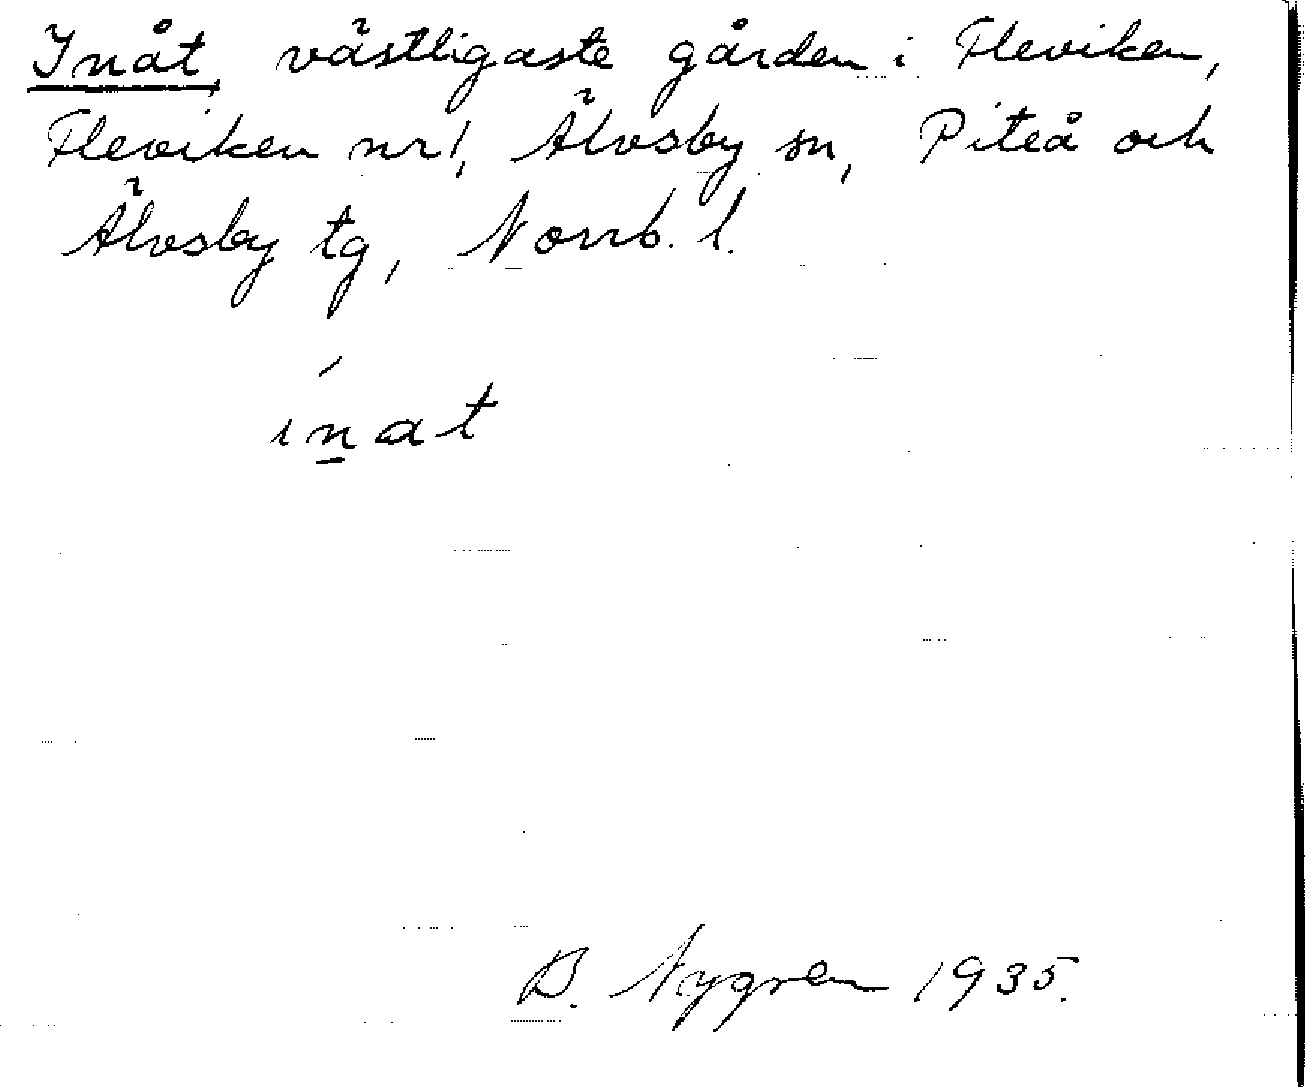 Inåt, västligaste gården i Fleviken,
Fleviken nr 1, Älvsby sn, Piteå och
Älvsby tg, Norrb. l.
ínat
B. Nygren 1935.